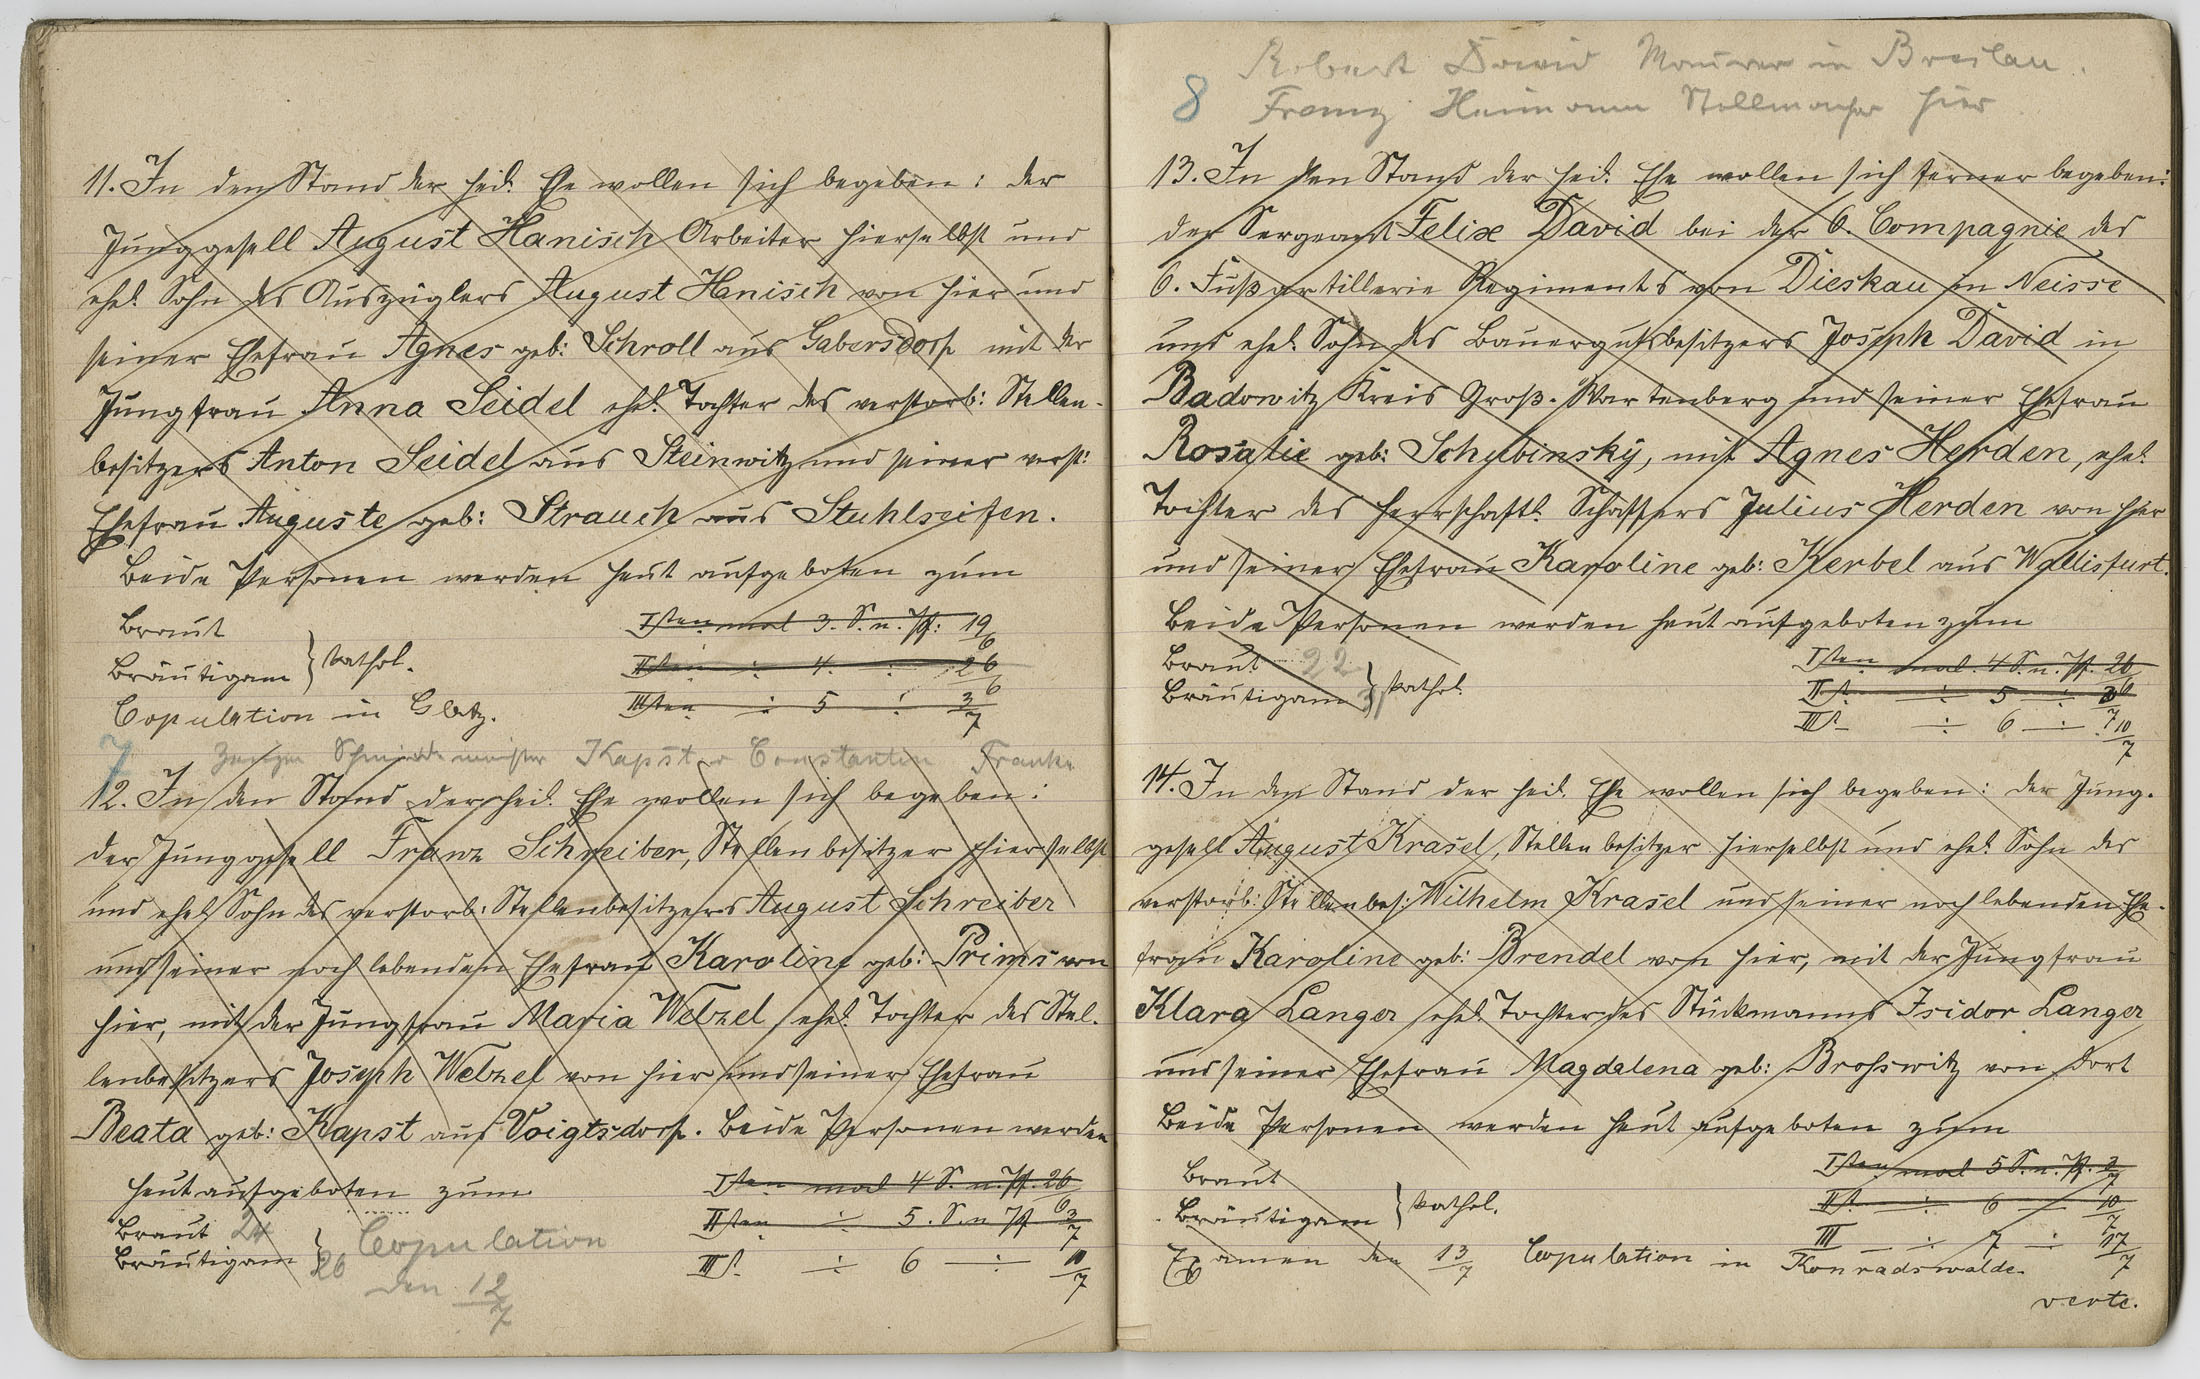 11. In den Stand der heil. Ehe wollen sich begeben: der
Junggesell August Hanisch Arbeiter hierselbst und
ehel. Sohn des Auszüglers August Hanisch von hier und
seiner Ehefrau Agnes geb: Schroll aus Gabersdorf mit der
Jungfrau Anna Seidel ehel. Tochter des verstorb: Stellen-
besitzers Anton Seidel aus Steinwitz und seiner verst:
Ehefrau Auguste geb: Strauch aus Stuhlseifen.
Beide Personen werden heut aufgeboten zum
Braut
Bräutigam } kathol.
Copulation in Glatz.
Isten mal 3. S. n. Pf: 19/6
IIten ÷ 4. ÷ 26/6
IIIten ÷ 5 ÷ 3/7
7 Zeugen Schmiedemeister Kapst Constantin Franke
12. In den Stand der heil. Ehe wollen sich begeben:
der Junggesell Franz Schreiber, Stellenbesitzer hierselbst
und ehel. Sohn des verstorb: Stellenbesitzers August Schreiber
und seiner noch lebenden Ehefrau Karoline geb: Prims von
hier, mit der Jungfrau Maria Welzel ehel. Tochter des Stel-
lenbesitzers Joseph Welzel von hier und seiner Ehefrau
Beata geb: Kapst aus Voigtsdorf. Beide Personen werden
heut aufgeboten zum
Braut 24
Bräutigam } 26
Copulation
den 12/7
Isten mal 4 S. n. Pf. 26/6
IIten ÷ 5. S. n Pf 3/7
IIIt. ÷ 6 ÷ 10/7
Robert David Maurer in Breslau.
8 Franz Heimann Stellmacher hier
13. In den Stand der heil. Ehe wollen sich ferner begeben:
der Sergeant Felix David bei der 6. Compagnie des
6. Fußartillerie Regiments von Dieskau in Neisse
und ehel. Sohn des Bauergutsbesitzers Joseph David in
Badowitz Kreis Groß-Wartenberg und seiner Ehefrau
Rosalie geb: Schubinsky, mit Agnes Herden, ehel.
Tochter des herrschaftl. Schaffers Julius Herden von hier
und seiner Ehefrau Karoline geb: Kerbel aus Wallisfurt.
Beide Personen werden heut aufgeboten zum
Braut 22
Bräutigam } kathol.
Isten mal. 4 S. n. Pf. 26/6
IIt. ÷ 5 ÷ 3/7
IIIt. ÷ 6 ÷ 10/7
14. In den Stand der heil. Ehe wollen sich begeben: der Jung-
gesell August Krasel, Stellenbesitzer hierselbst und ehel. Sohn des
verstorb: Stellenbes: Wilhelm Krasel und seiner noch lebenden Ehe-
frau Karoline geb: Brendel von hier, mit der Jungfrau
Klara Langer ehel. Tochter des Stückmanns Isidor Langer
und seiner Ehefrau Magdalena geb: Broßwitz von dort
Beide Personen werden heut aufgeboten zum
Braut
Bräutigam } kathol.
Isten mal 5 S. n. Pf. 3/7
IIt. ÷ 6 — 10/7
III — ÷ 7 ÷ 17/7
Examen den 13/7 Copulation in Konradswalde.
verte.